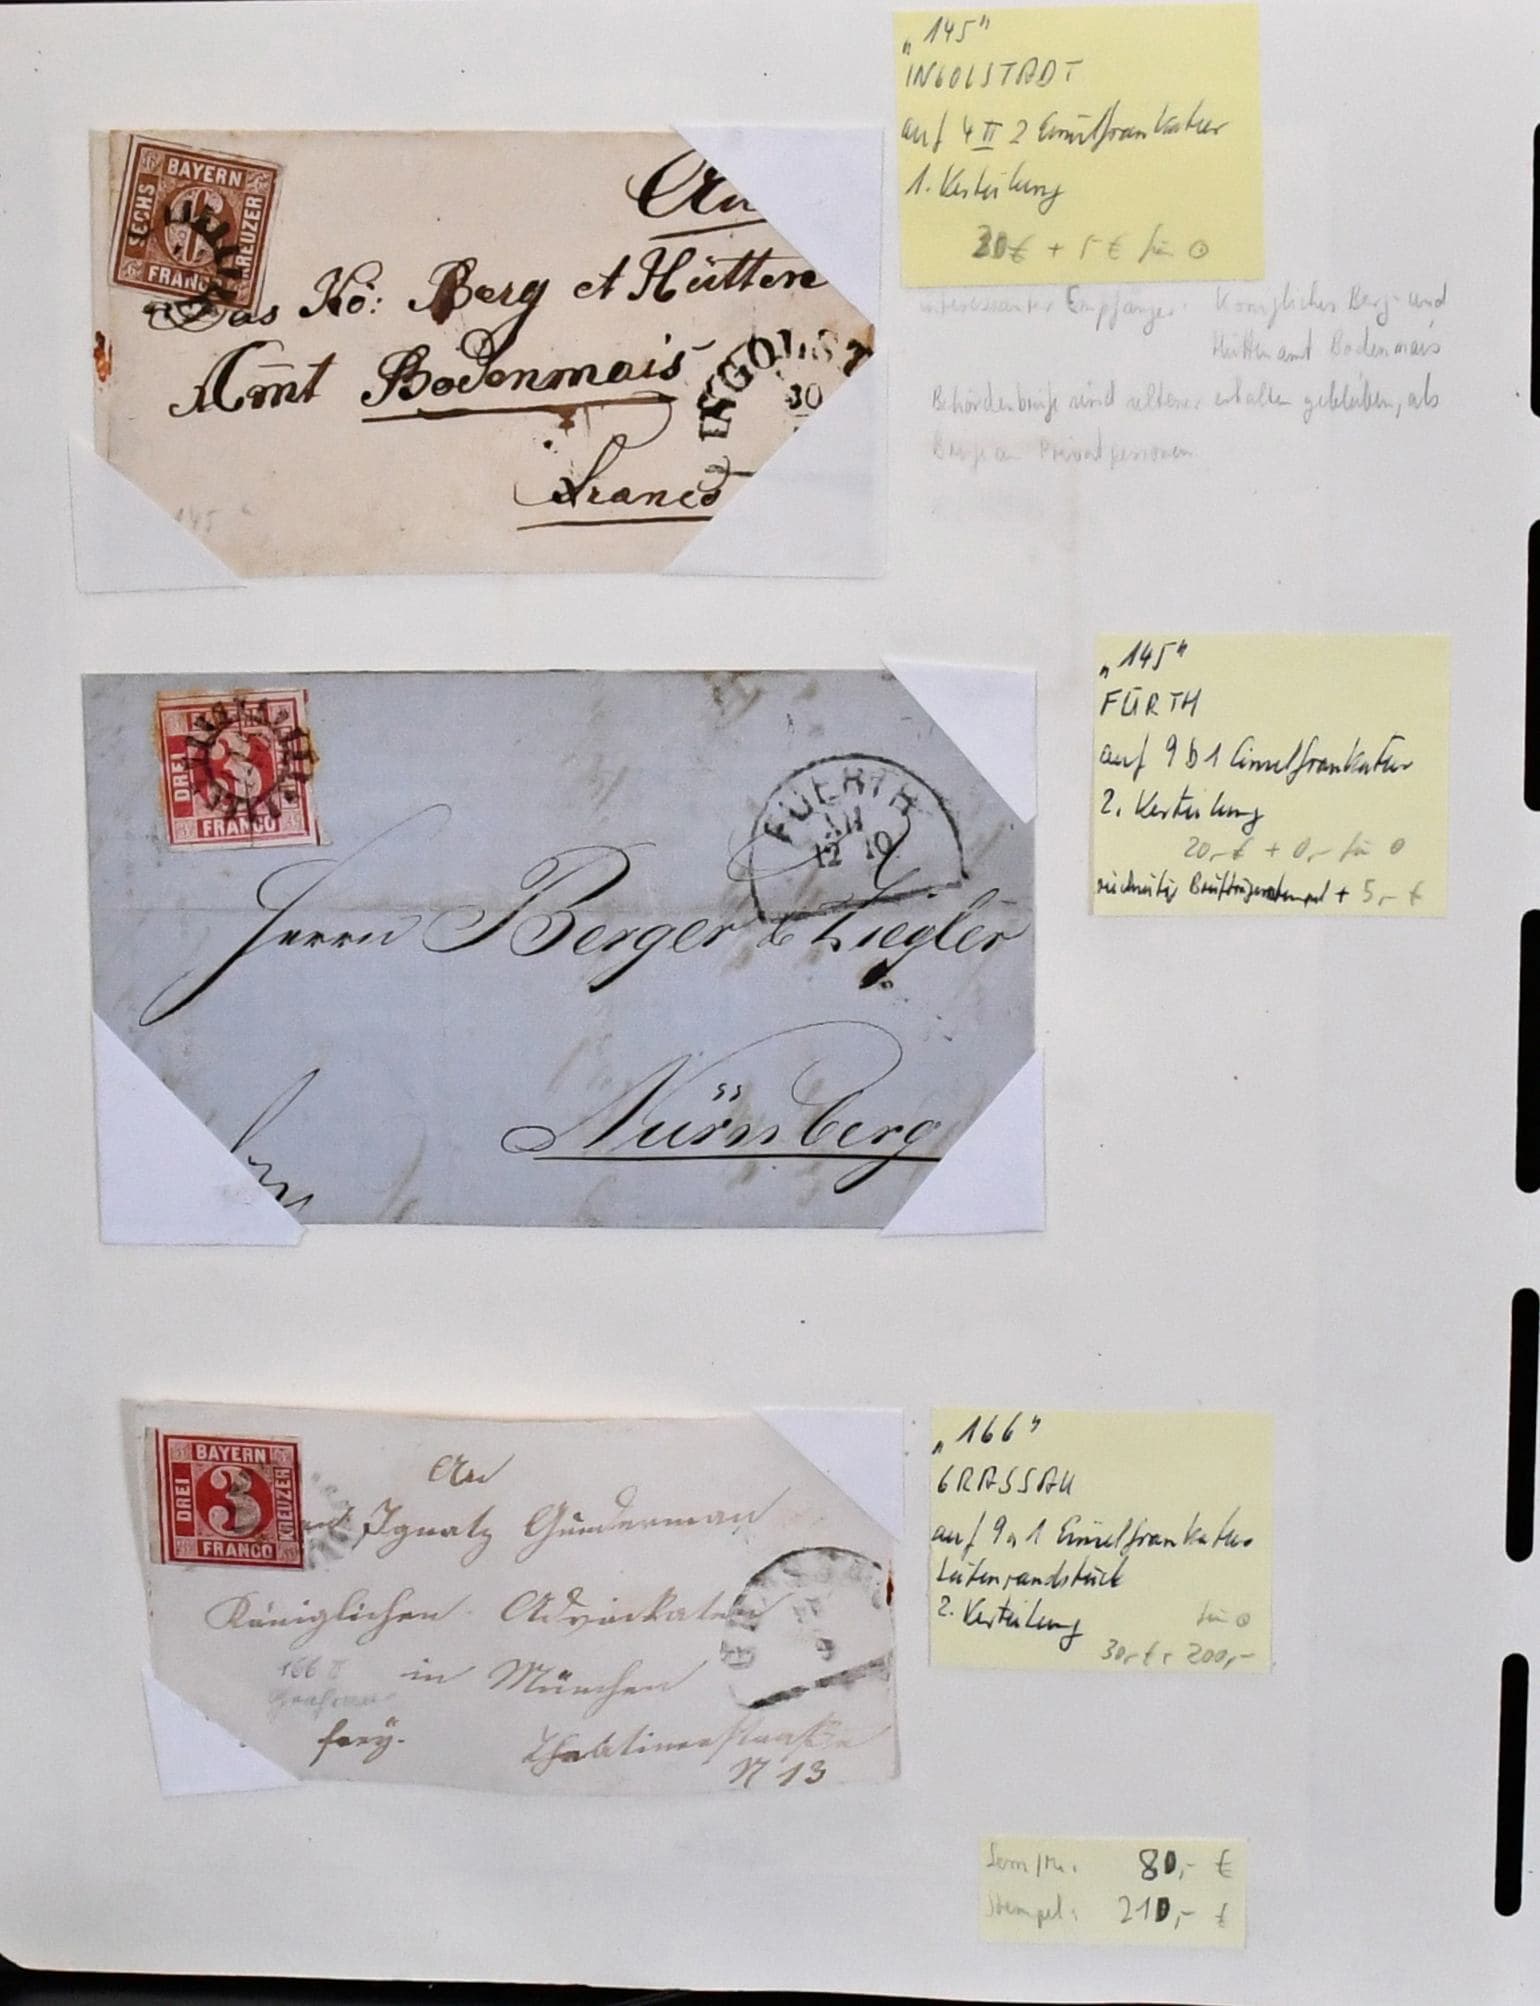 „145"
INGOLSTADT
auf 4 II 2 Einzelfrankatur
1. Verteilung
20€ + 5€ für ⊙
interessanter Empfänger: Königliches Berg- und
Hüttenamt Bodenmais
Behördenbriefe sind seltener erhalten geblieben, als
Briefe an Privatpersonen
BAYERN
SECHS
KREUZER
FRANCO
6
An
Das Kö: Berg et Hütten
Amt Bodenmais
Franco
INGOLST
30
145
„145"
FÜRTH
auf 9 b 1 Einzelfrankatur
2. Verteilung
20,-€ + 0,- für ⊙
rückseitig Briefträgerstempel + 5,- €
DREI
3
FRANCO
FUERTH
III
12 10
Herrn Berger & Ziegler
Nürnberg
„166"
GRASSAU
auf 9a1 Einzelfrankatur
Seitenrandstück
2. Verteilung
für ⊙
30,-€ + 200,-
BAYERN
DREI
3
KREUZER
FRANCO
An
Ignatz Gunderman
Königlichen Advockaten
in München
166 II
frey.
N 13
80,- €
Stempel: 210,- €